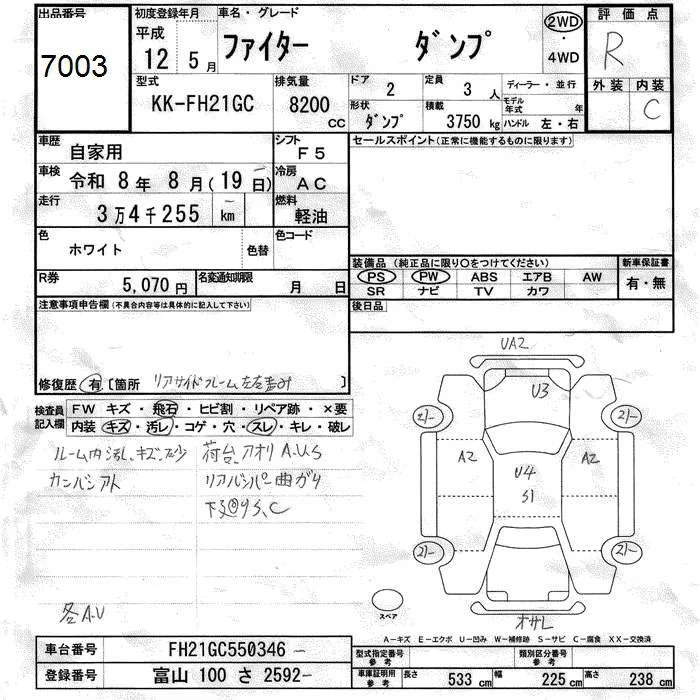 出品番号
7003
初度登録年月
平成
12 5月
車名・グレード
ファイター ダンプ
2WD
・
4WD
評価点
R
外装 内装
C
型式
KK-FH21GC
排気量
8200 CC
ドア 2
定員 3 人
ディーラー・並行
形状 ダンプ
積載 3750 kg
モデル年式 年
ハンドル 左・右
車歴 自家用
シフト F5
車検 令和 8年 8月(19日)
冷房 AC
走行 3万4千255 km
燃料 軽油
色 ホワイト 色替
色コード
R券 5,070円
名変通知期限 月 日
セールスポイント(正常に機能するものに限ります)
装備品 (純正品に限り○をつけてください)
新車保証書
PS PW ABS エアB AW
SR ナビ TV カワ
有・無
後日品
注意事項申告欄(不具合内容等は具体的に記入して下さい)
修復歴 有 [箇所 リアサイドフレーム左右歪み ]
検査員記入欄
FW キズ・飛石・ヒビ割・リペア跡・×要
内装・キズ・汚レ・コゲ・穴・スレ・キレ・破レ
荷台、アオリ A.U.S
リアバンパー曲がり
各A.U
UA2
U3
A2
U4
S1
A2
スペア
オサレ
A−キズ E−エクボ U−凹み W−補修跡 S−サビ C−腐食 XX−交換済
車台番号 FH21GC550346−
登録番号 富山 100 さ 2592−
型式指定番号 参考
類別区分番号 参考
車庫証明用 参考
長さ 533 cm
幅 225 cm
高さ 238 cm